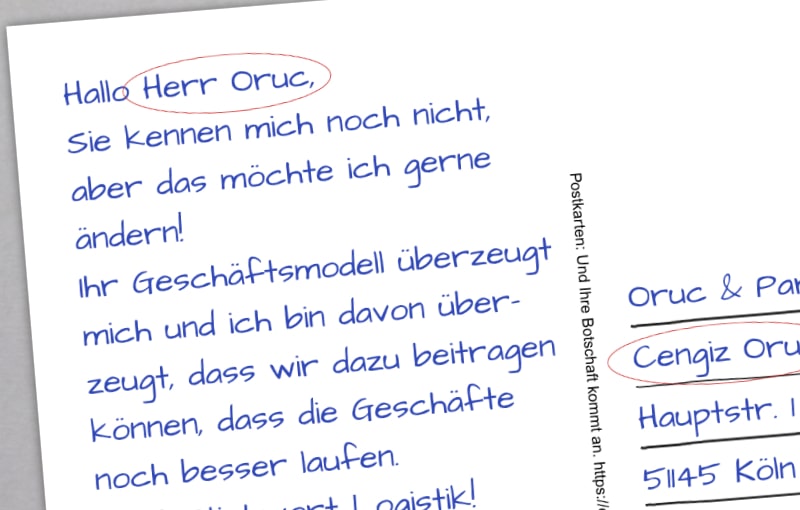 Hallo Herr Oruc,
Sie kennen mich noch nicht,
aber das möchte ich gerne
ändern!
Ihr Geschäftsmodell überzeugt
mich und ich bin davon über-
zeugt, dass wir dazu beitragen
können, dass die Geschäfte
noch besser laufen.
Postkarten: Und Ihre Botschaft kommt an. https:/
Oruc &
Cengiz
Hauptstr. 1
51145 Köln